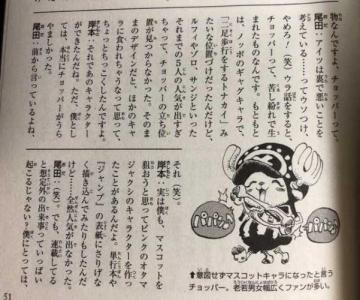 物なんですよ、チョッパーって。
尾田：アイツは裏で悪いことを
考えている……ってウソつけ、
やめろ！（笑）ウラ話をすると、
チョッパーって、苦し紛れで生
まれたものなんです。もともと
は、ノッポのギャグキャラで、
「二足歩行をするトナカイ」み
たいな位置づけだったんだけど、
それまでの5人の人気が出すぎ
ちゃって、チョッパーの立ち位
置が見つからなかった。そのま
まのデザインだと、ほかのキャ
ラに食われちゃうなって思って、
ちょっとちっこくしたんですよ。
岸本：それであのキャラクター
ができたんだね。ただ、僕とし
ては、本当にチョッパーがうら
やましかった。
尾田：前から言っているよね、
それ（笑）。
岸本：実は僕も、マスコットを
狙おうと思ってピンクのオタマ
ジャクシのキャラクターを作っ
たことがあるんだ。単行本や
『ジャンプ』の表紙にさりげな
く描き込んでみたりもしたんだ
けど……全然人気が出なかった。
尾田：（笑）。でも、連載してる
と想定外の出来事っていっぱい
起こるじゃない。僕にとっては、
⬆意図せずマスコットキャラになったと言う
チョッパー。老若男女幅広くファンが多い。
51